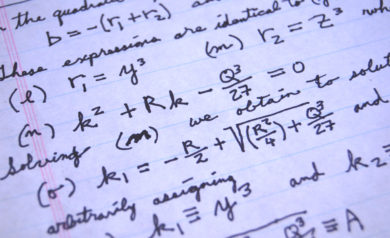 the quadra
b = -(r₁ + r₂)
These expressions are identical to
(l) r₁ = y³ (m) r₂ = z³ wh
(n) k² + Rk - Q³/27 = 0
Solving (n) we obtain to solut
(o) k₁ = -R/2 + √((R²/4) + Q³/27 and
arbitrarily assigning
k₁ ≡ y³ and k₂ =
Q³ ≡ A